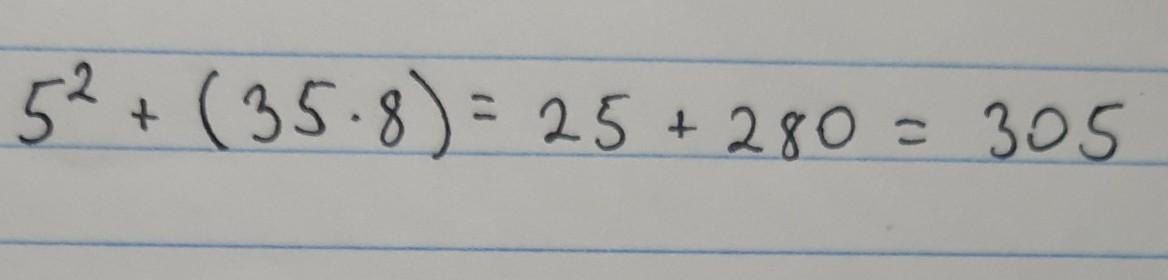 5² + (35·8) = 25 + 280 = 305